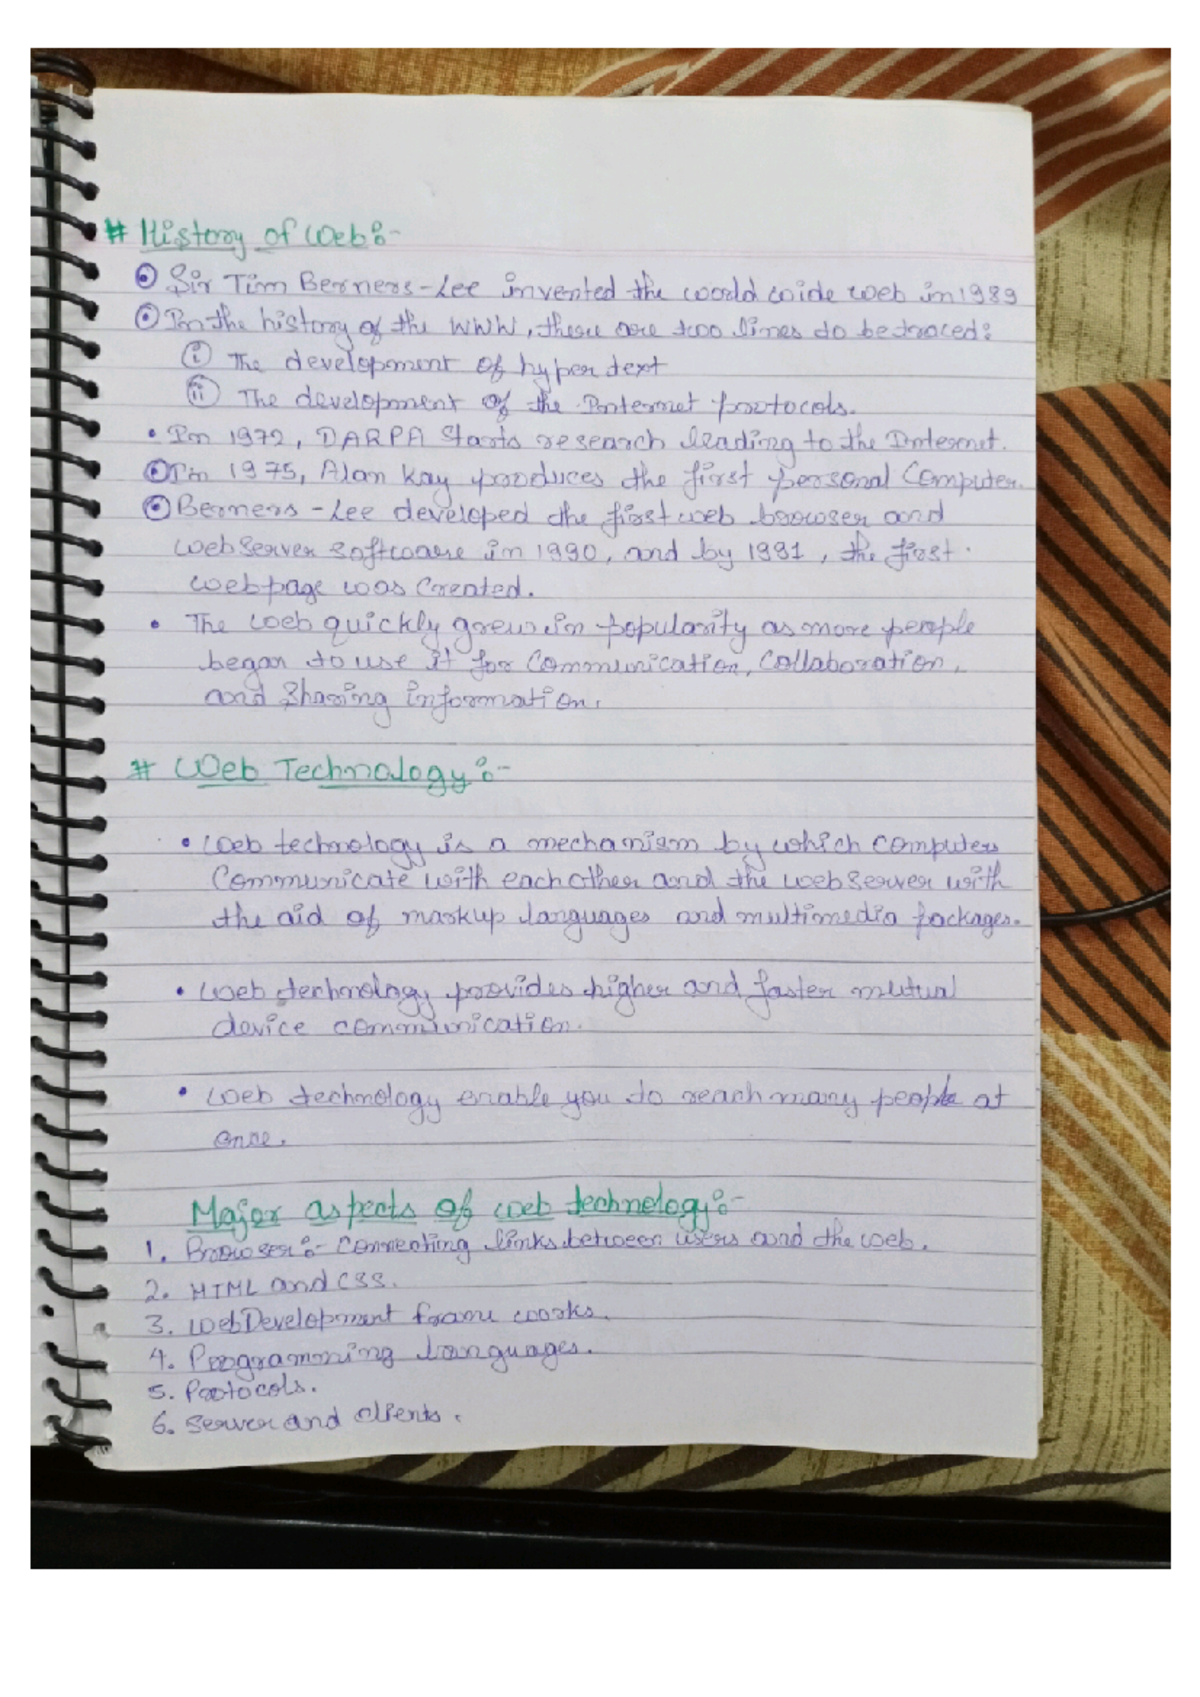 # History of Web:-
⊙ Sir Tim Berners-Lee invented the world wide web in 1989
⊙ In the history of the WWW, there are two lines to be traced:
(i) The development of hyper text
(ii) The development of the Internet protocols.
• In 1972, DARPA Starts research leading to the Internet.
⊙ In 1975, Alan Kay produces the first personal Computer.
⊙ Berners-Lee developed the first web browser and
web server software in 1990, and by 1991, the first
webpage was Created.
• The web quickly grew in popularity as more people
began to use it for Communication, Collaboration,
and Sharing information.
# Web Technology:-
• Web technology is a mechanism by which computers
Communicate with each other and the web server with
the aid of markup languages and multimedia packages.
• Web technology provides higher and faster mutual
device communication.
• Web technology enable you to reach many people at
once.
Major aspects of web technology:-
1. Browser:- Connecting links between users and the web.
2. HTML and CSS.
3. Web Development frame works.
4. Programming languages.
5. Protocols.
6. Server and clients.